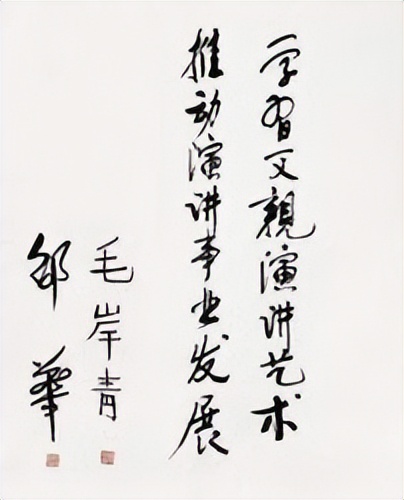 学习父親演讲艺术
推动演讲事业发展
毛岸青
邵華